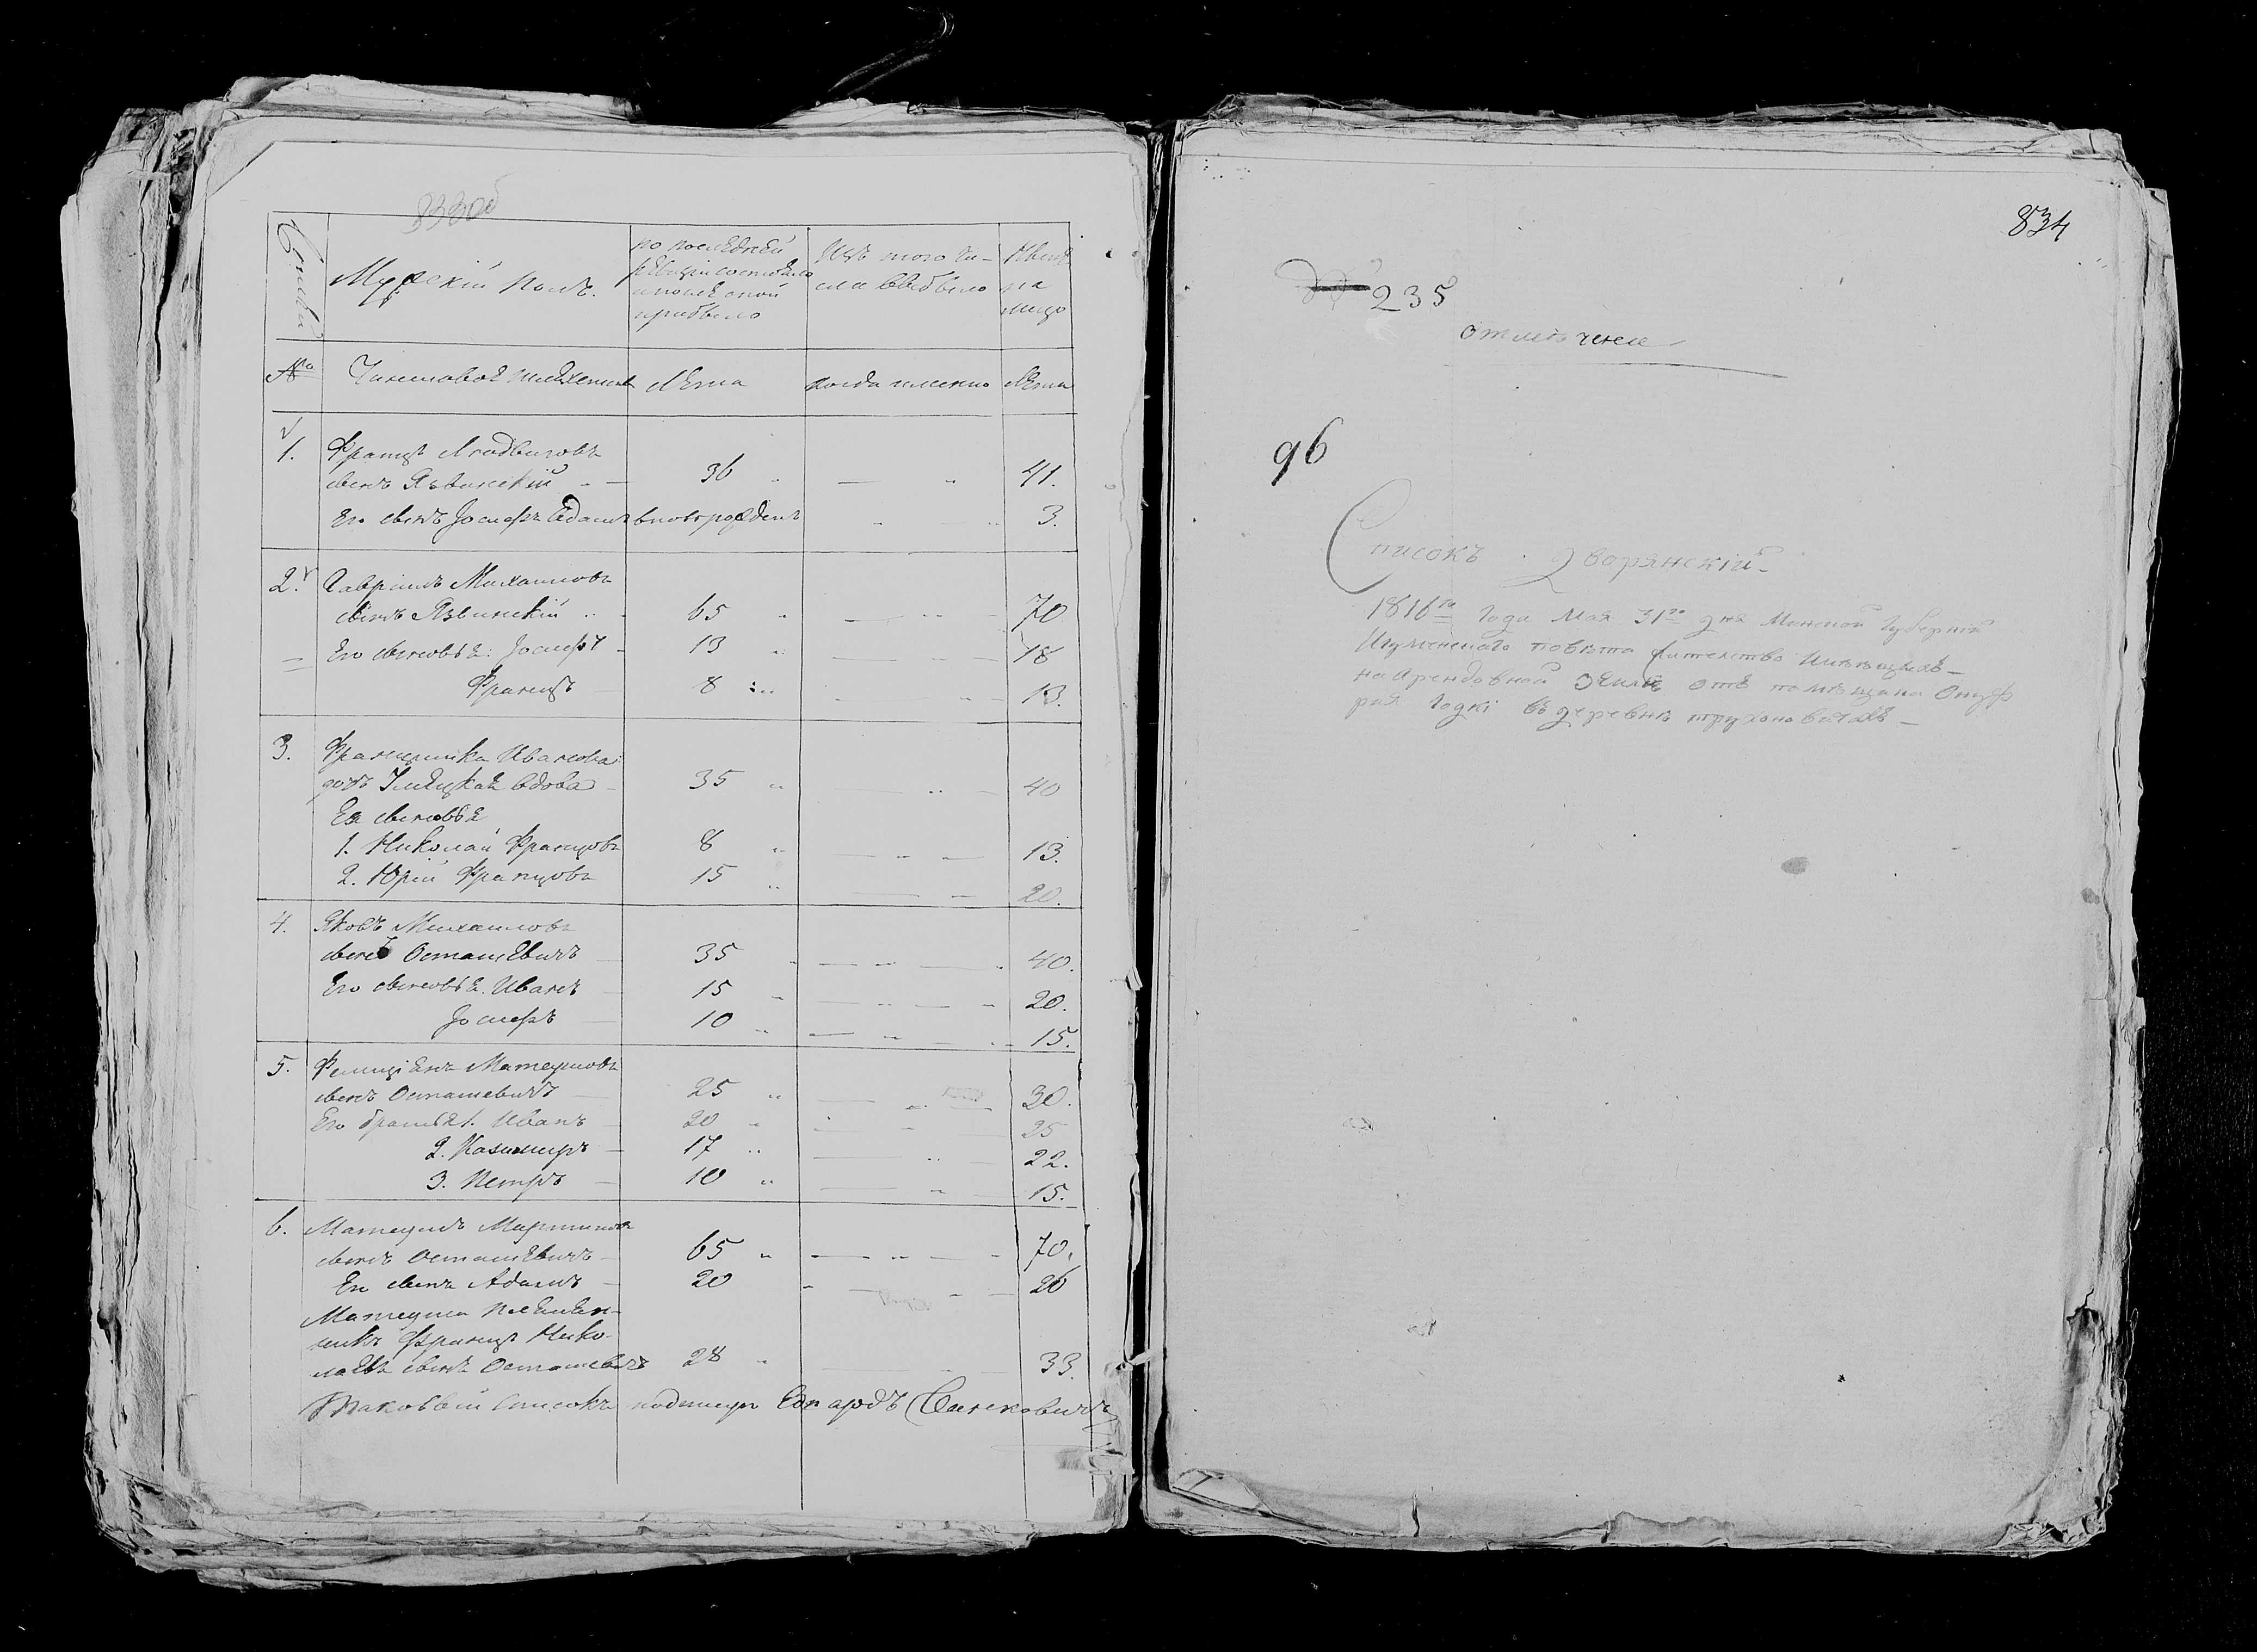 833об
Семьи
Мужскій полъ.
по последней
ревизіи состояло
и после оной
прибыло
Изъ того чи-
сла выбыло
Ныне
на
лицо
№
Чиншовое шляхетство
лета
когда именно
лета
1. Францъ Людвиговъ
сынъ Язвинскій 36 41.
Его сынъ Іосифъ Адамъ вновърожденъ 3.
2. Гавріилъ Михаиловъ
сынъ Язвинскій 65 70
Его сыновье: Іосифъ 13 18
Францъ 8 13.
3. Францишка Иванова
дочь вдова 35 40
Ея сыновье
1. Николай Францовъ 8 13.
2. Юрій Францовъ 15 20.
4. Яковъ Михаиловъ
сынъ Осташевичъ 35 40.
Его сыновье. Иванъ 15 20.
Іосифъ 10 15.
5. Фелиціенъ Матеушовъ
сынъ Осташевичъ 25 30.
Его братья 1. Иванъ 20 25
2. Казимиръ 17 22.
3. Петръ 10 15.
6. Матеушъ Мартинов
сынъ Осташевичъ 65 70.
Его сынъ Адамъ 20 26
Матеуша племен-
никъ Францъ Нико-
лаевъ сынъ Осташевичъ 28 33.
Таковый Списокъ подписую
834
235
отмечене
96
Списокъ дворянскій
1816го Года Мая 31го дня Минской Губерніи
Игуменскаго повета жителство
на Арендовной Земле отъ помещика Онуф
рия Годки въ деревне труханович ахъ